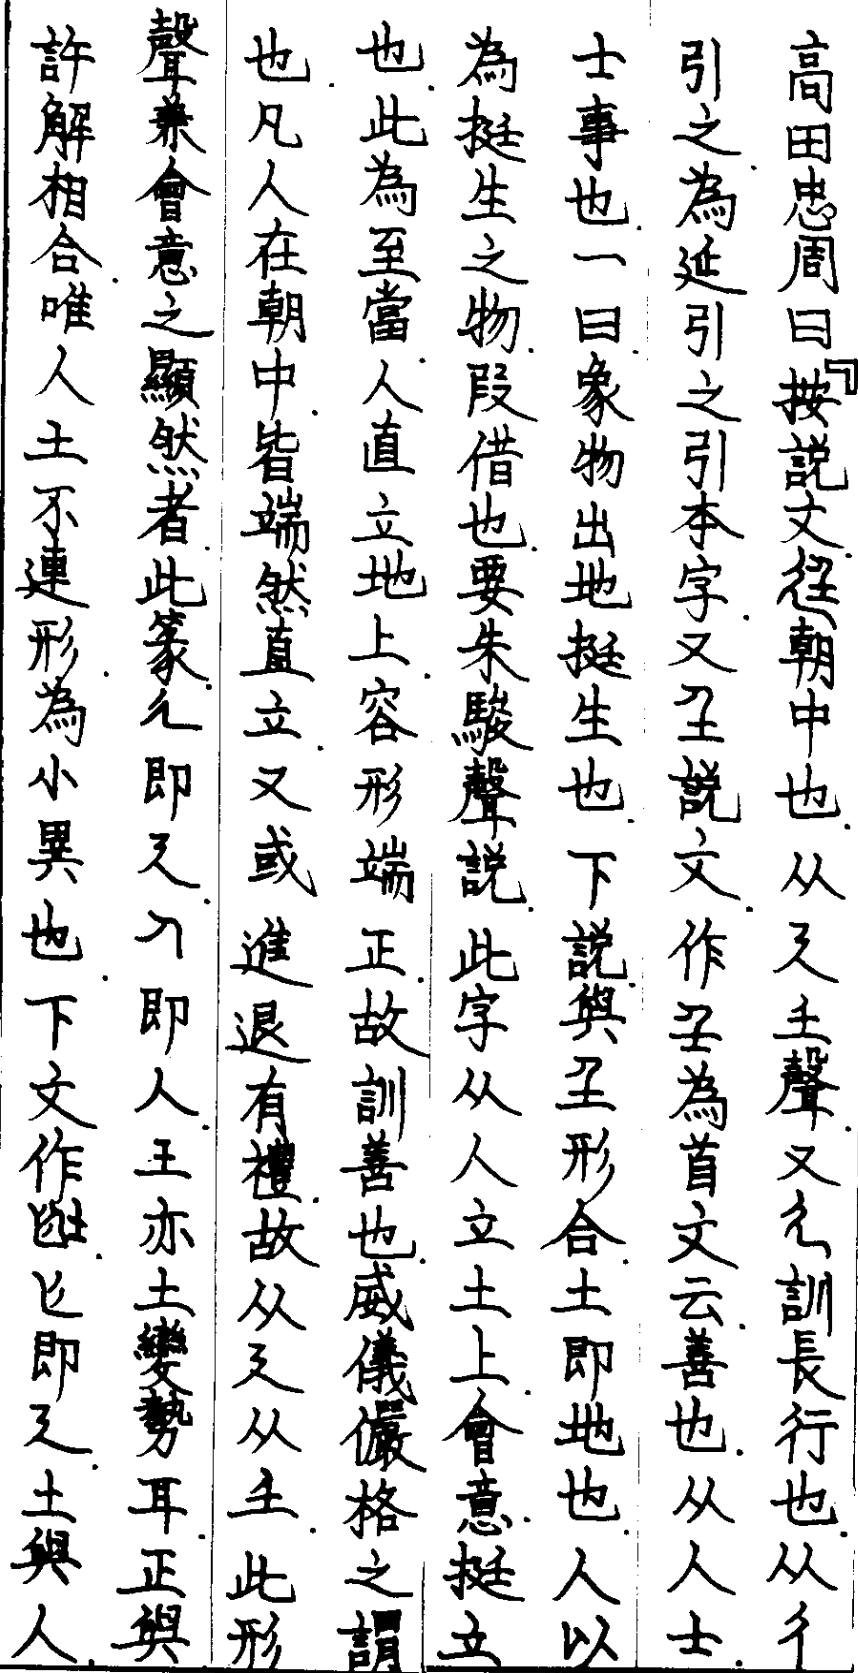 高田忠周曰「按說文𢓊朝中也从廴𡈼聲又廴訓長行也从彳
引之為延引之引本字又𡈼說文作𡈼為首文云善也从人士
士事也一曰象物出地挺生也下說與𡈼形合土即地也人以
為挺生之物段借也要朱駿聲說此字从人立土上會意挺立
也此為至當人直立地上容形端正故訓善也威儀儼格之謂
也凡人在朝中皆端然直立又或進退有禮故从廴从𡈼此形
聲兼會意之顯然者此篆即廴即人王亦土變勢耳正與
許解相合唯人土不連形為小異也下文作即廴土與人